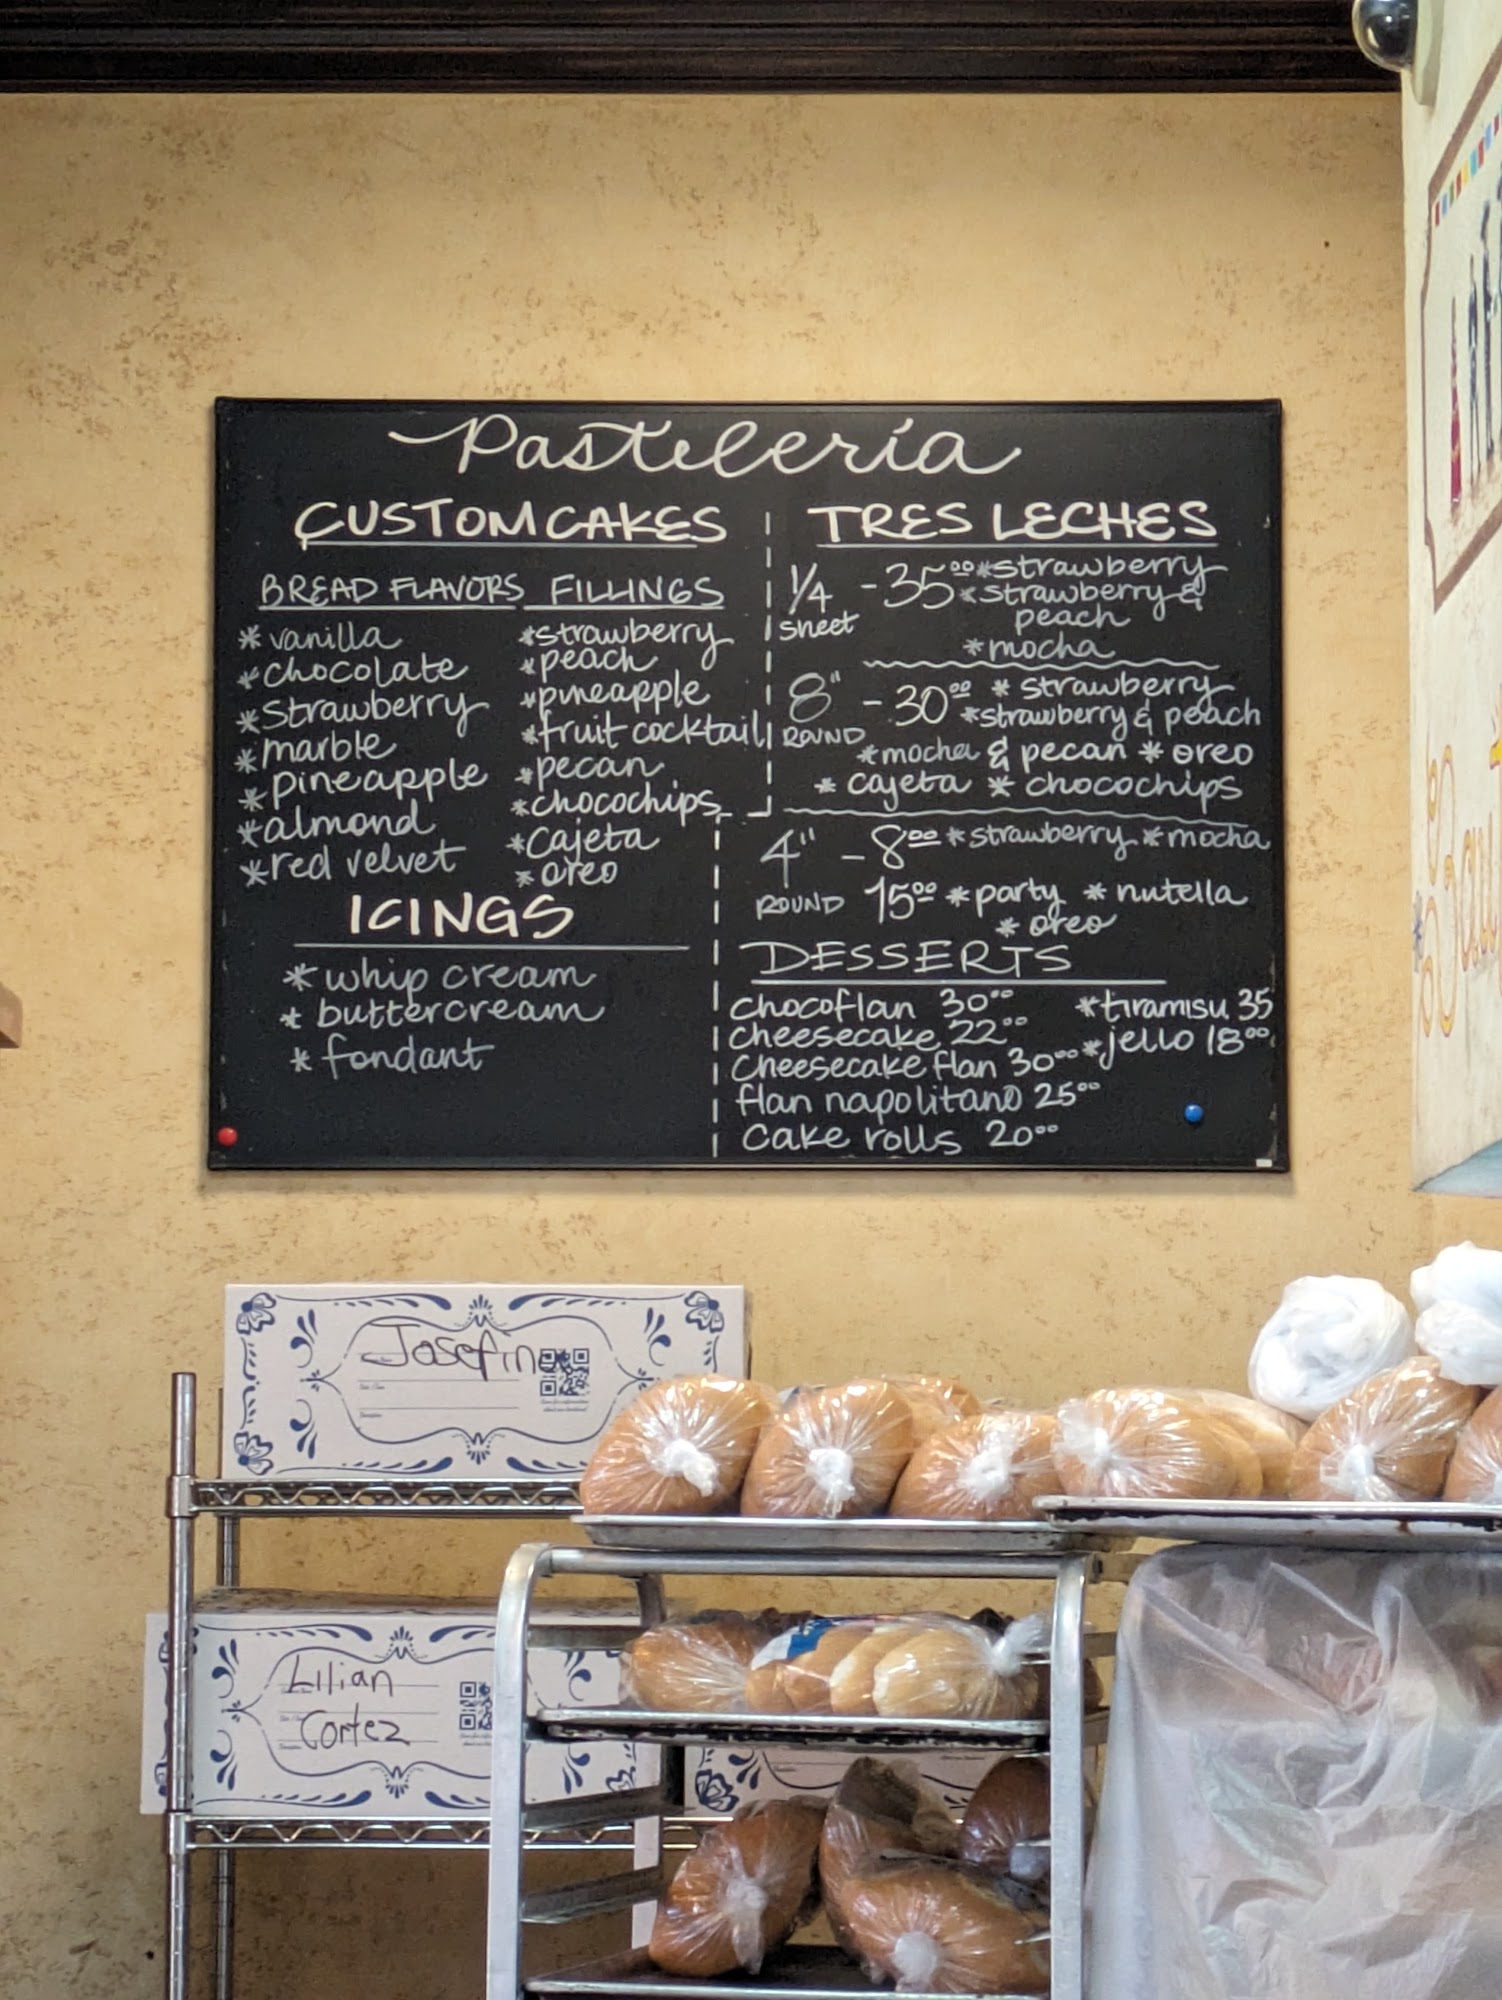 Pastelería
CUSTOM CAKES
BREAD FLAVORS
* vanilla
* chocolate
* strawberry
* marble
* pineapple
* almond
* red velvet
FILLINGS
* strawberry
* peach
* pineapple
* fruit cocktail
* pecan
* chocochips
* cajeta
* oreo
ICINGS
* whip cream
* buttercream
* fondant
TRES LECHES
1/4 - 35⁰⁰ * strawberry
sheet * strawberry &
peach
* mocha
8" - 30⁰⁰ * strawberry
ROUND * strawberry & peach
* mocha & pecan * oreo
* cajeta * chocochips
4" - 8⁰⁰ * strawberry * mocha
ROUND 15⁰⁰ * party * nutella
* oreo
DESSERTS
chocoflan 30⁰⁰ * tiramisu 35
cheesecake 22⁰⁰ * jello 18⁰⁰
cheesecake flan 30⁰⁰
flan napolitano 25⁰⁰
cake rolls 20⁰⁰
Josefina
Lilian
Cortez